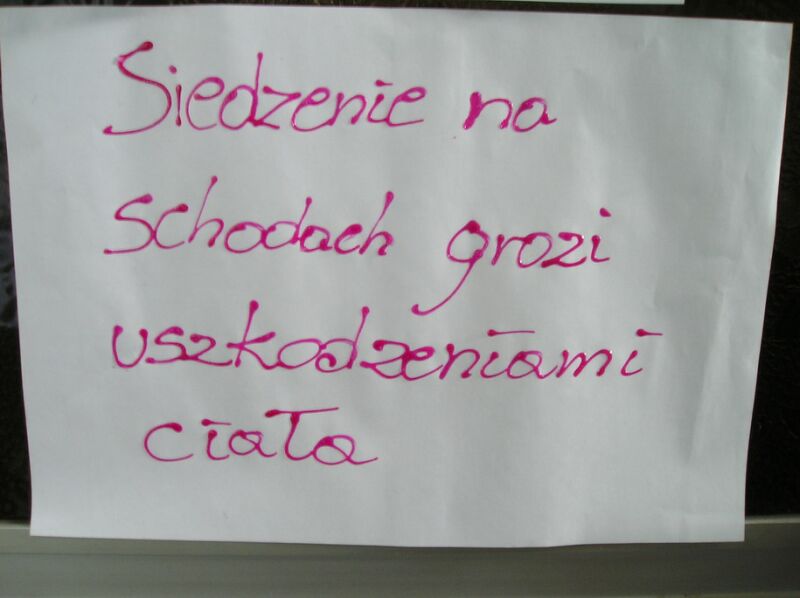 Siedzenie na
schodach grozi
uszkodzeniami
ciała